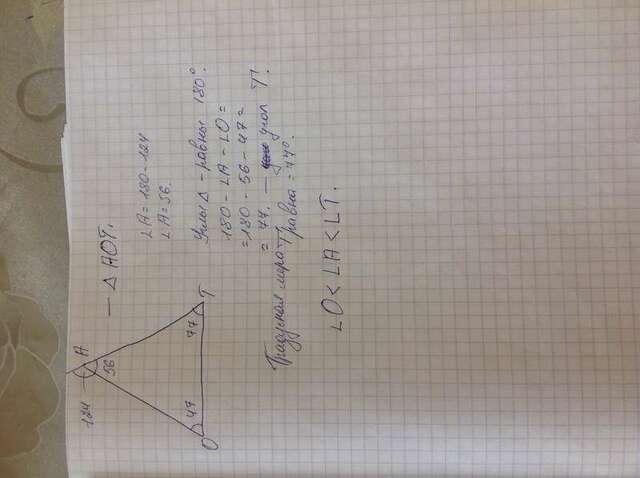 124 A
56
— Δ AOT.
∠A = 180 - 124
∠A = 56.
47 77
O T
Углы Δ - равны 180°.
180 - ∠A - ∠O =
= 180 - 56 - 47 =
= 77. — угол T.
Градусная мера T равна = 77°.
∠O < ∠A < ∠T.